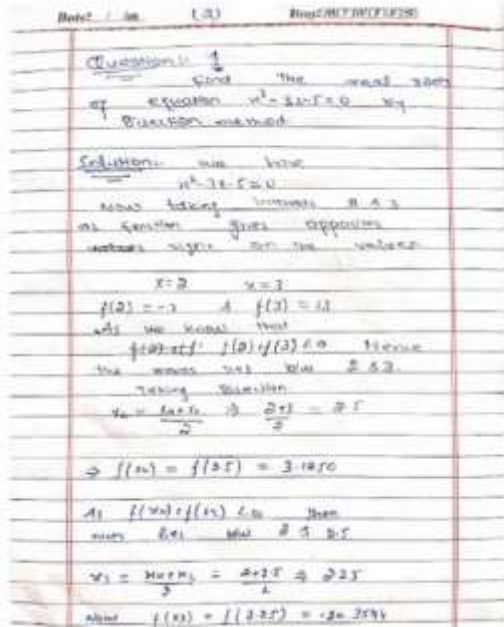 (2)
Question: 1
Find the real root
of equation x³-3x-5=0 by
Bisection method
Solution:- we have
x³-3x-5=0
Now taking interval 2 & 3
as function gives opposite
signs on the values
x=2 x=3
f(2) = -3 & f(3) = 13
As we know that
f(2)·f(3)<0 Hence
the lies b/w 2 & 3.
Taking Bisection
= 2+3/2 = 2.5
⇒ f(x₂) = f(2.5) = 3.1250
As f(x₀)·f(x₂) <0 then
lies b/w 2 & 2.5
x₃ = x₀+x₂/2 = 2+2.5/2 ⇒ 2.25
Now f(x₃) = f(2.25) =